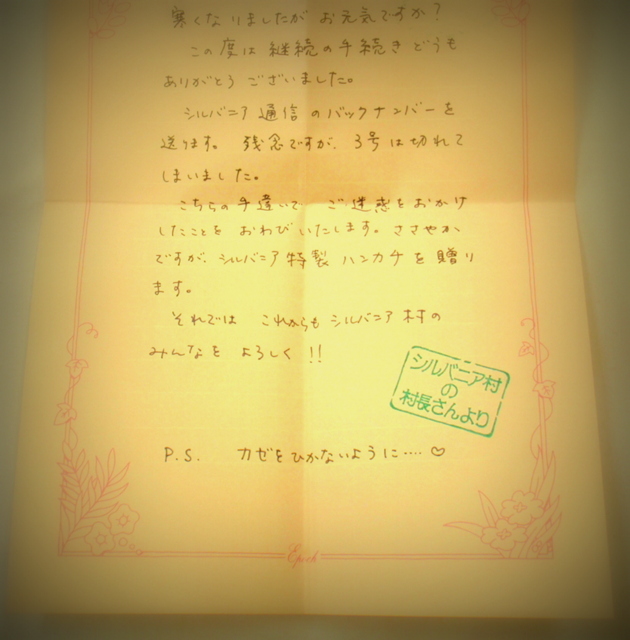 寒くなりましたがお元気ですか?
この度は継続の手続きどうも
ありがとうございました。
シルバニア通信のバックナンバーを
送ります。残念ですが、3号は切れて
しまいました。
こちらの手違いで ご迷惑をおかけ
したことを おわびいたします。ささやか
ですが、シルバニア特製 ハンカチを贈り
ます。
それでは これからも シルバニア村の
みんなを よろしく!!
シルバニア村
の
村長さんより
P.S. カゼをひかないように‥‥♡
Epoch